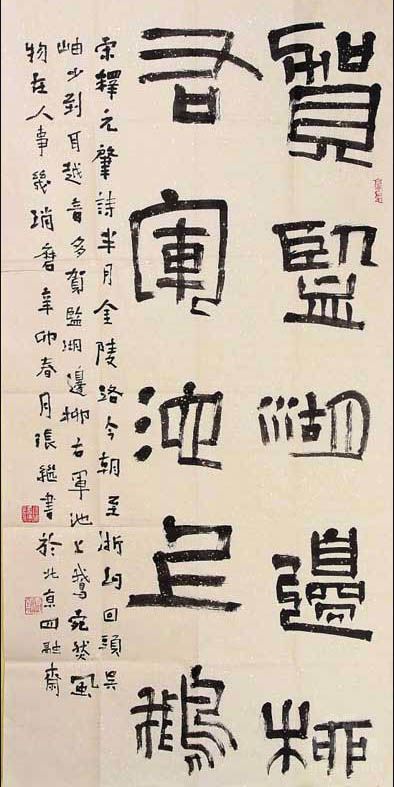 賀監湖邊柳
右軍池上鵝
宋釋元肇詩半月金陵路今朝至浙河回頭吳
岫少到耳越音多賀監湖邊柳右軍池上鵝宛然風
物在人事幾消磨辛卯春月張繼書於北京四融齋